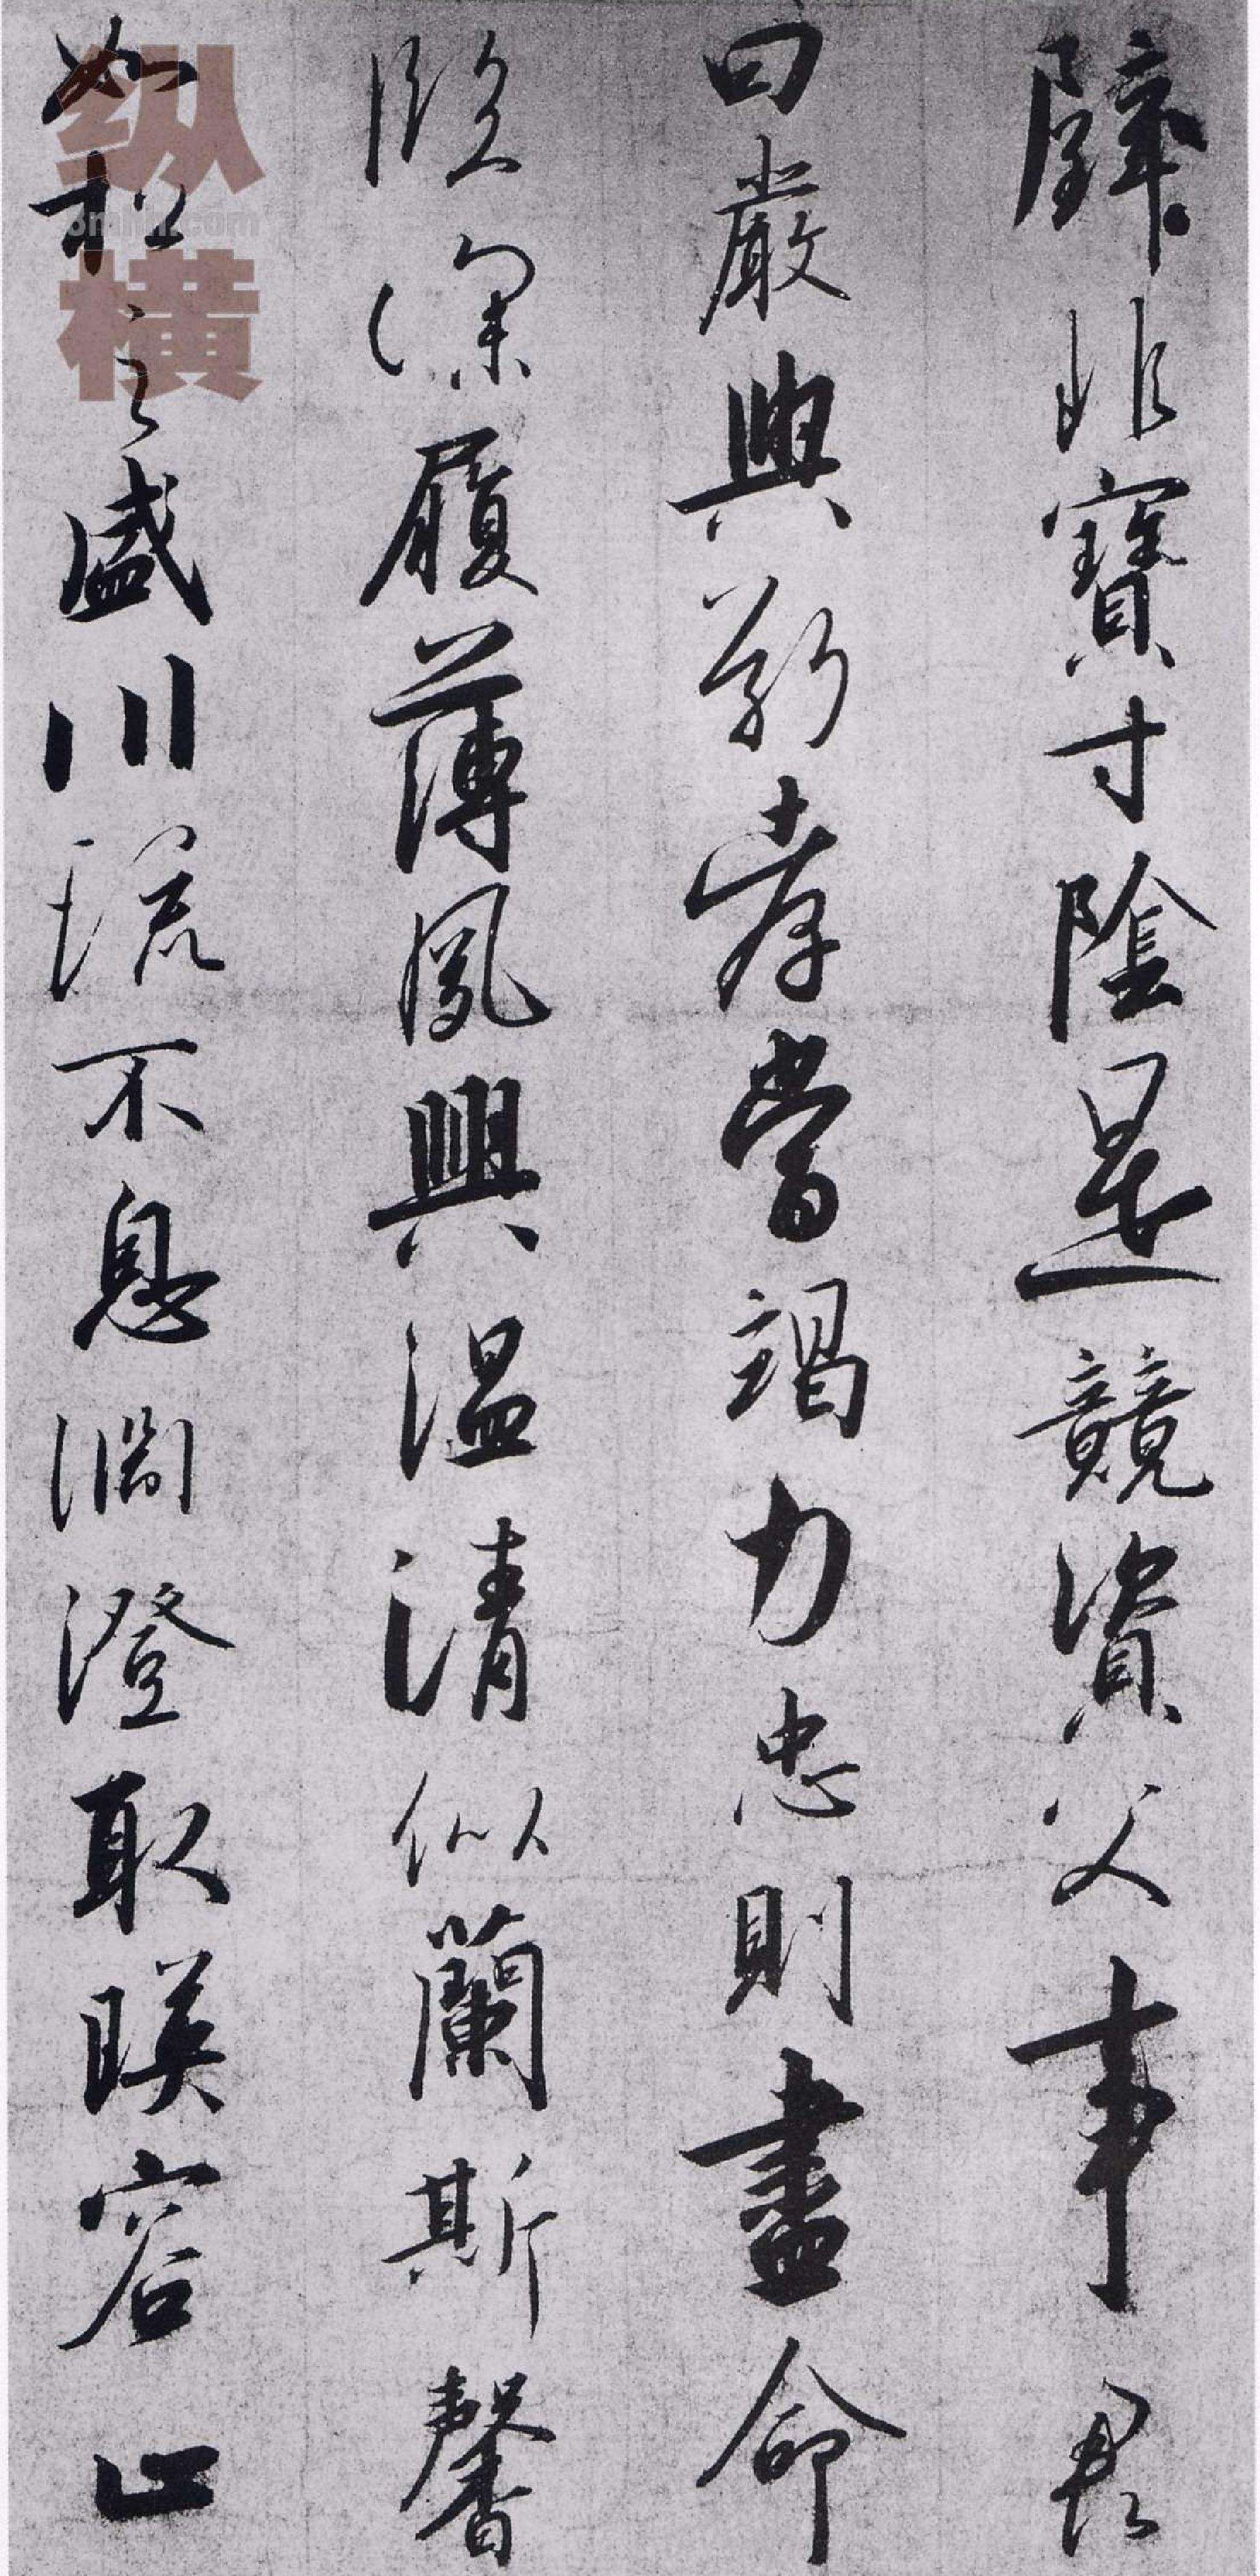 璧非寶寸陰是競資父事君
曰嚴與敬孝當竭力忠則盡命
臨深履薄夙興温清似蘭斯馨
如松之盛川流不息淵澄取暎容止
纵横